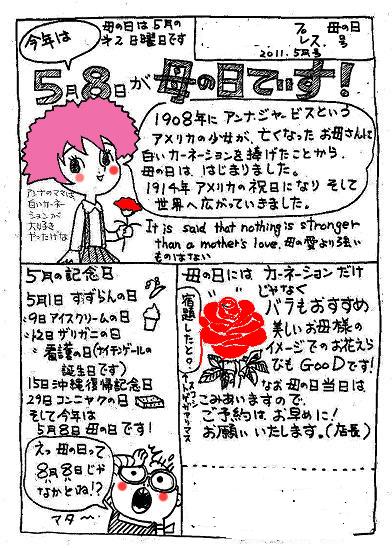 今年は
母の日は5月の
才2日曜日です
プレス.
母の日号
2011.5月号
5月8日が母の日でぃす!
1908年にアンナ.ジャービスという
アメリカの少女が、亡くなったお母さんに
白いカーネーションを捧げたことから、
母の日は、はじまりました。
1914年アメリカの祝日になり そして
世界へ広がっていきました。
It is said that nothing is stronger
than a mother's love. 母の愛より強い
ものはない
アンナのママは
白いカーネー
ションが
大好き
やったげな
5月の記念日
5月1日 すずらんの日
〃9日アイスクリームの日
〃12日 ザリガニの日
〃看護の日(ナイチンゲールの
誕生日です)
15日沖縄復帰記念日
29日コンニャクの日
そして今年は
5月8日 母の日です!
えっ母の日って
8月8日じゃ
なかとね!?
アタ〜
母の日には カーネーションだけ
じゃなく
バラもおすすめ
美しいお母様の
イメージでのお花えら
びも GooDです!
なお母の日当日は
こみあいますので、
ご予約は お早めに!
お願いいたします。(店長)
宿題したと。